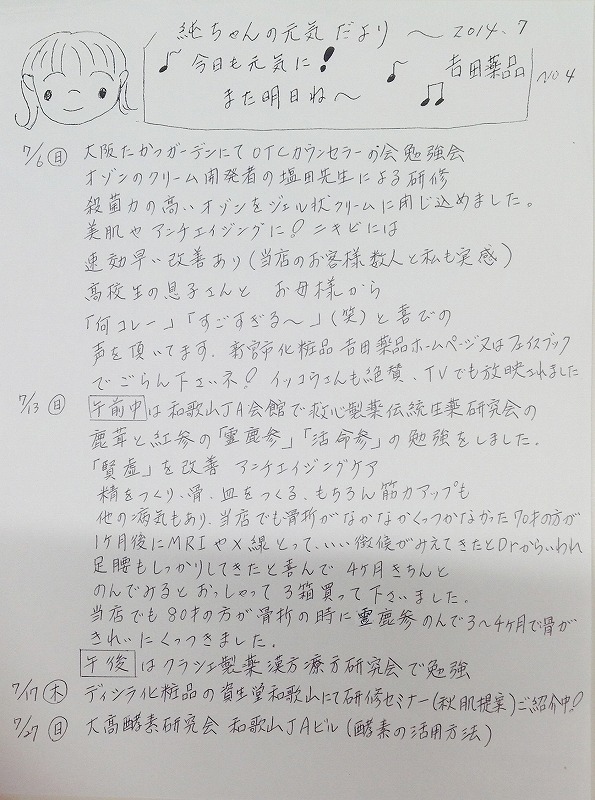 純ちゃんの元気だより 〜 2014.7
♪今日も元気に! ♪ 吉田薬品 NO4
また明日ね〜 ♫
7/6(日) 大阪たかつガーデンにてOTCカウンセラーの会勉強会
オゾンのクリーム開発者の塩田先生による研修
殺菌力の高いオゾンをジェル状クリームに閉じ込めました。
美肌やアンチエイジングに!ニキビには
速効早い改善あり(当店のお客様数人と私も実感)
高校生の息子さんと お母様から
「何コレー」「すごすぎる〜」(笑)と喜びの
声を頂いてます。新宮市化粧品吉田薬品ホームページ又はフェイスブック
でごらん下さいネ!イッコウさんも絶賛、TVでも放映されました
7/13(日) 午前中は和歌山JA会館で救心製薬伝統生薬研究会の
鹿茸と紅参の「霊鹿参」「活命参」の勉強をしました。
「腎虚」を改善 アンチエイジングケア
精をつくり、骨、血をつくる、もちろん筋力アップも
他の病気もあり、当店でも骨折がなかなかくっつかなかった70才の方が
1ヶ月後にMRIやX線とって、いい徴候がみえてきたとDrからいわれ
足腰もしっかりしてきたと喜んで 4ヶ月きちんと
のんでみるとおっしゃって 3箱買って下さいました。
当店でも80才の方が骨折の時に霊鹿参のんで3〜4ヶ月で骨が
きれいにくっつきました。
午後はクラシエ製薬漢方療方研究会で勉強
7/17(木) ディシラ化粧品の資生堂和歌山にて研修セミナー(秋肌提案)ご紹介中!
7/27(日) 大高酵素研究会 和歌山JAビル(酵素の活用方法)